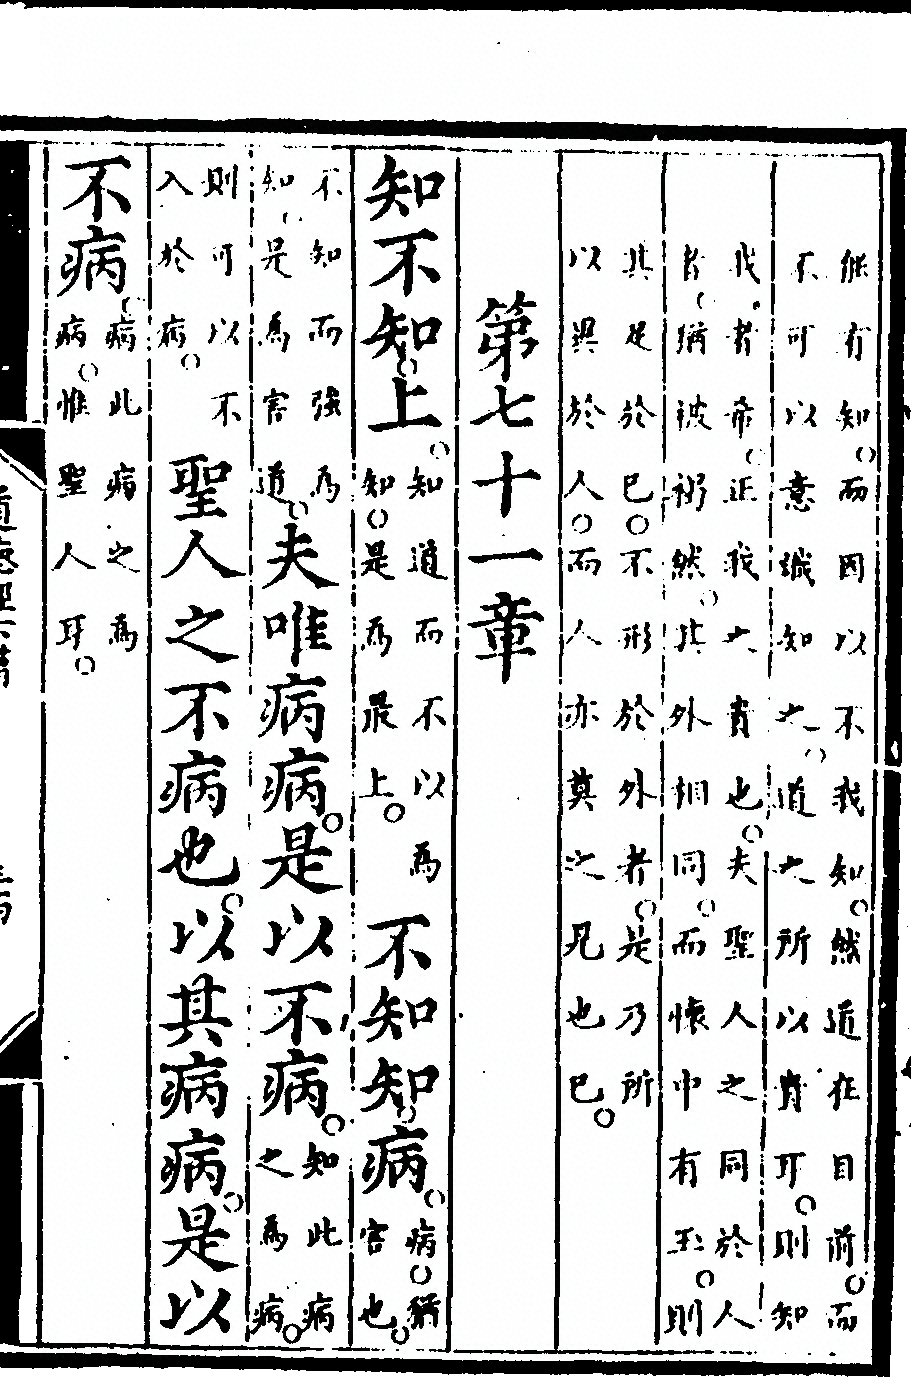 能有知。而因以不我知。然道在目前。而
不可以意識知之。道之所以貴耳。則知
我者希。正我之貴也。夫聖人之同於人
者。猶被褐然。其外相同。而懷中有玉。則
其足於己。不形於外者。是乃所
以異於人。而人亦莫之見也已。
第七十一章
知不知。上。知道而不以為知。是為最上。不知知。病。病。猶害也。
不知而強為知。是為害道。夫唯病病。是以不病。知此病之為病。
則可以不入於病。聖人之不病也。以其病病。是以
不病。病此病之為病。惟聖人耳。